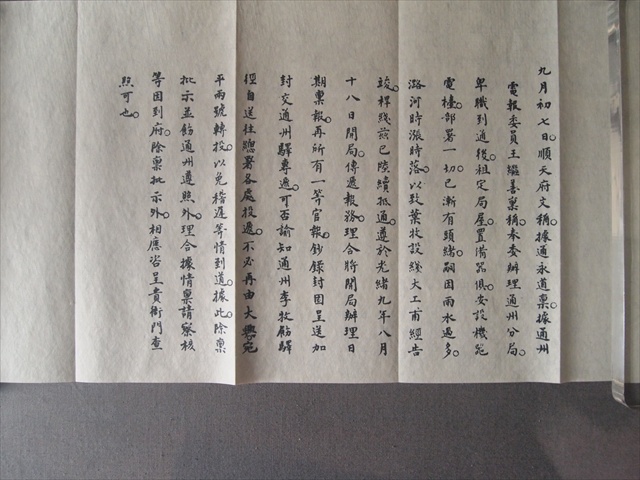 九月初七日。順天府文稱據通永道稟據通州
電報委員王繼善稟稱奉委辦理通州分局。
卑職到通後租定局屋置備器具安設機器
電檯部署一切已漸有頭緒嗣因雨水過多。
潞河時漲時落。以致葉牧設綫大工甫經告
竣。桿綫並已陸續抵通遵於光緒九年八月
十八日開局傳遞報務理合將開局辦理日
期稟報。再所有一等官報鈔錄封固呈送加
封交通州驛專遞。可否諭知通州李牧飭驛
徑自送往總署各處投遞。不必再由大興宛
平兩號轉投。以免稽遲等情到道據此。除稟
批示並飭通州遵照外。理合據情稟請察核
等因到府。除稟批示外。相應咨呈貴衙門查
照可也。